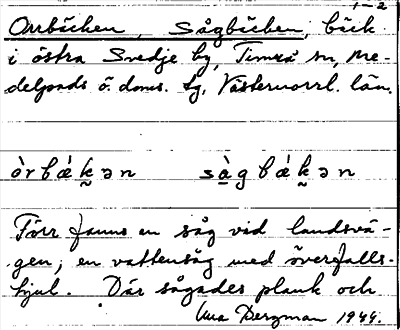 1-2
Orrbäcken, Sågbäcken, bäck
i östra Svedje by, Timrå sn, Me-
delpads ö. doms. tg, Västernorrl. län.
òrbǽk̬ən sàgbǽk̬ən
Förr fanns en såg vid landsvä-
gen, en vattensåg med överfalls-
hjul. Där sågades plank och
Bergman 1944.